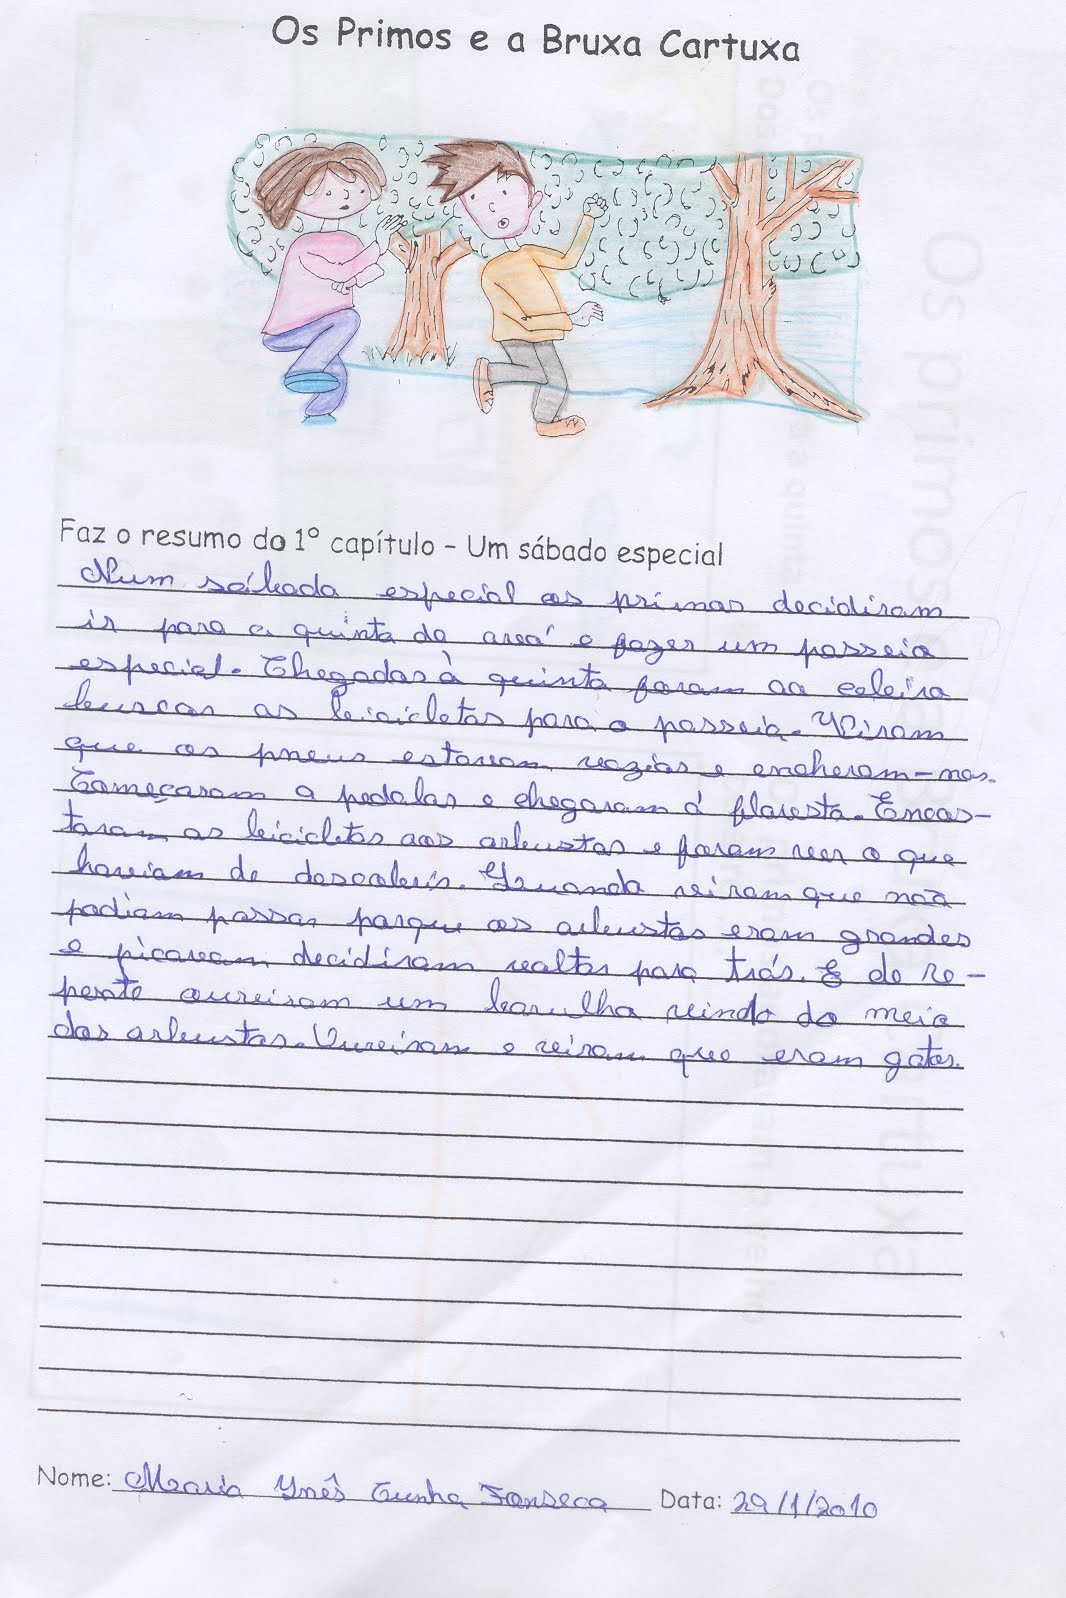 Os Primos e a Bruxa Cartuxa
Faz o resumo do 1º capítulo - Um sábado especial
Num sábado especial os primos decidiram
ir para a quinta do avô e fazer um passeio
especial. Chegados à quinta foram ao celeiro
buscar as bicicletas para o passeio. Viram
que os pneus estavam vazios e encheram-nos.
Começaram a pedalar e chegaram á floresta. Encos-
taram as bicicletas aos arbustos e foram ver o que
haviam de descobrir. Quando viram que não
podiam passar porque os arbustos eram grandes
e picavam decidiram voltar para trás. E de re-
pente ouviram um barulho vindo do meio
dos arbustos. e viram que eram gatos.
Nome: Maria Ynês Cunha Fonseca Data: 29/1/2010